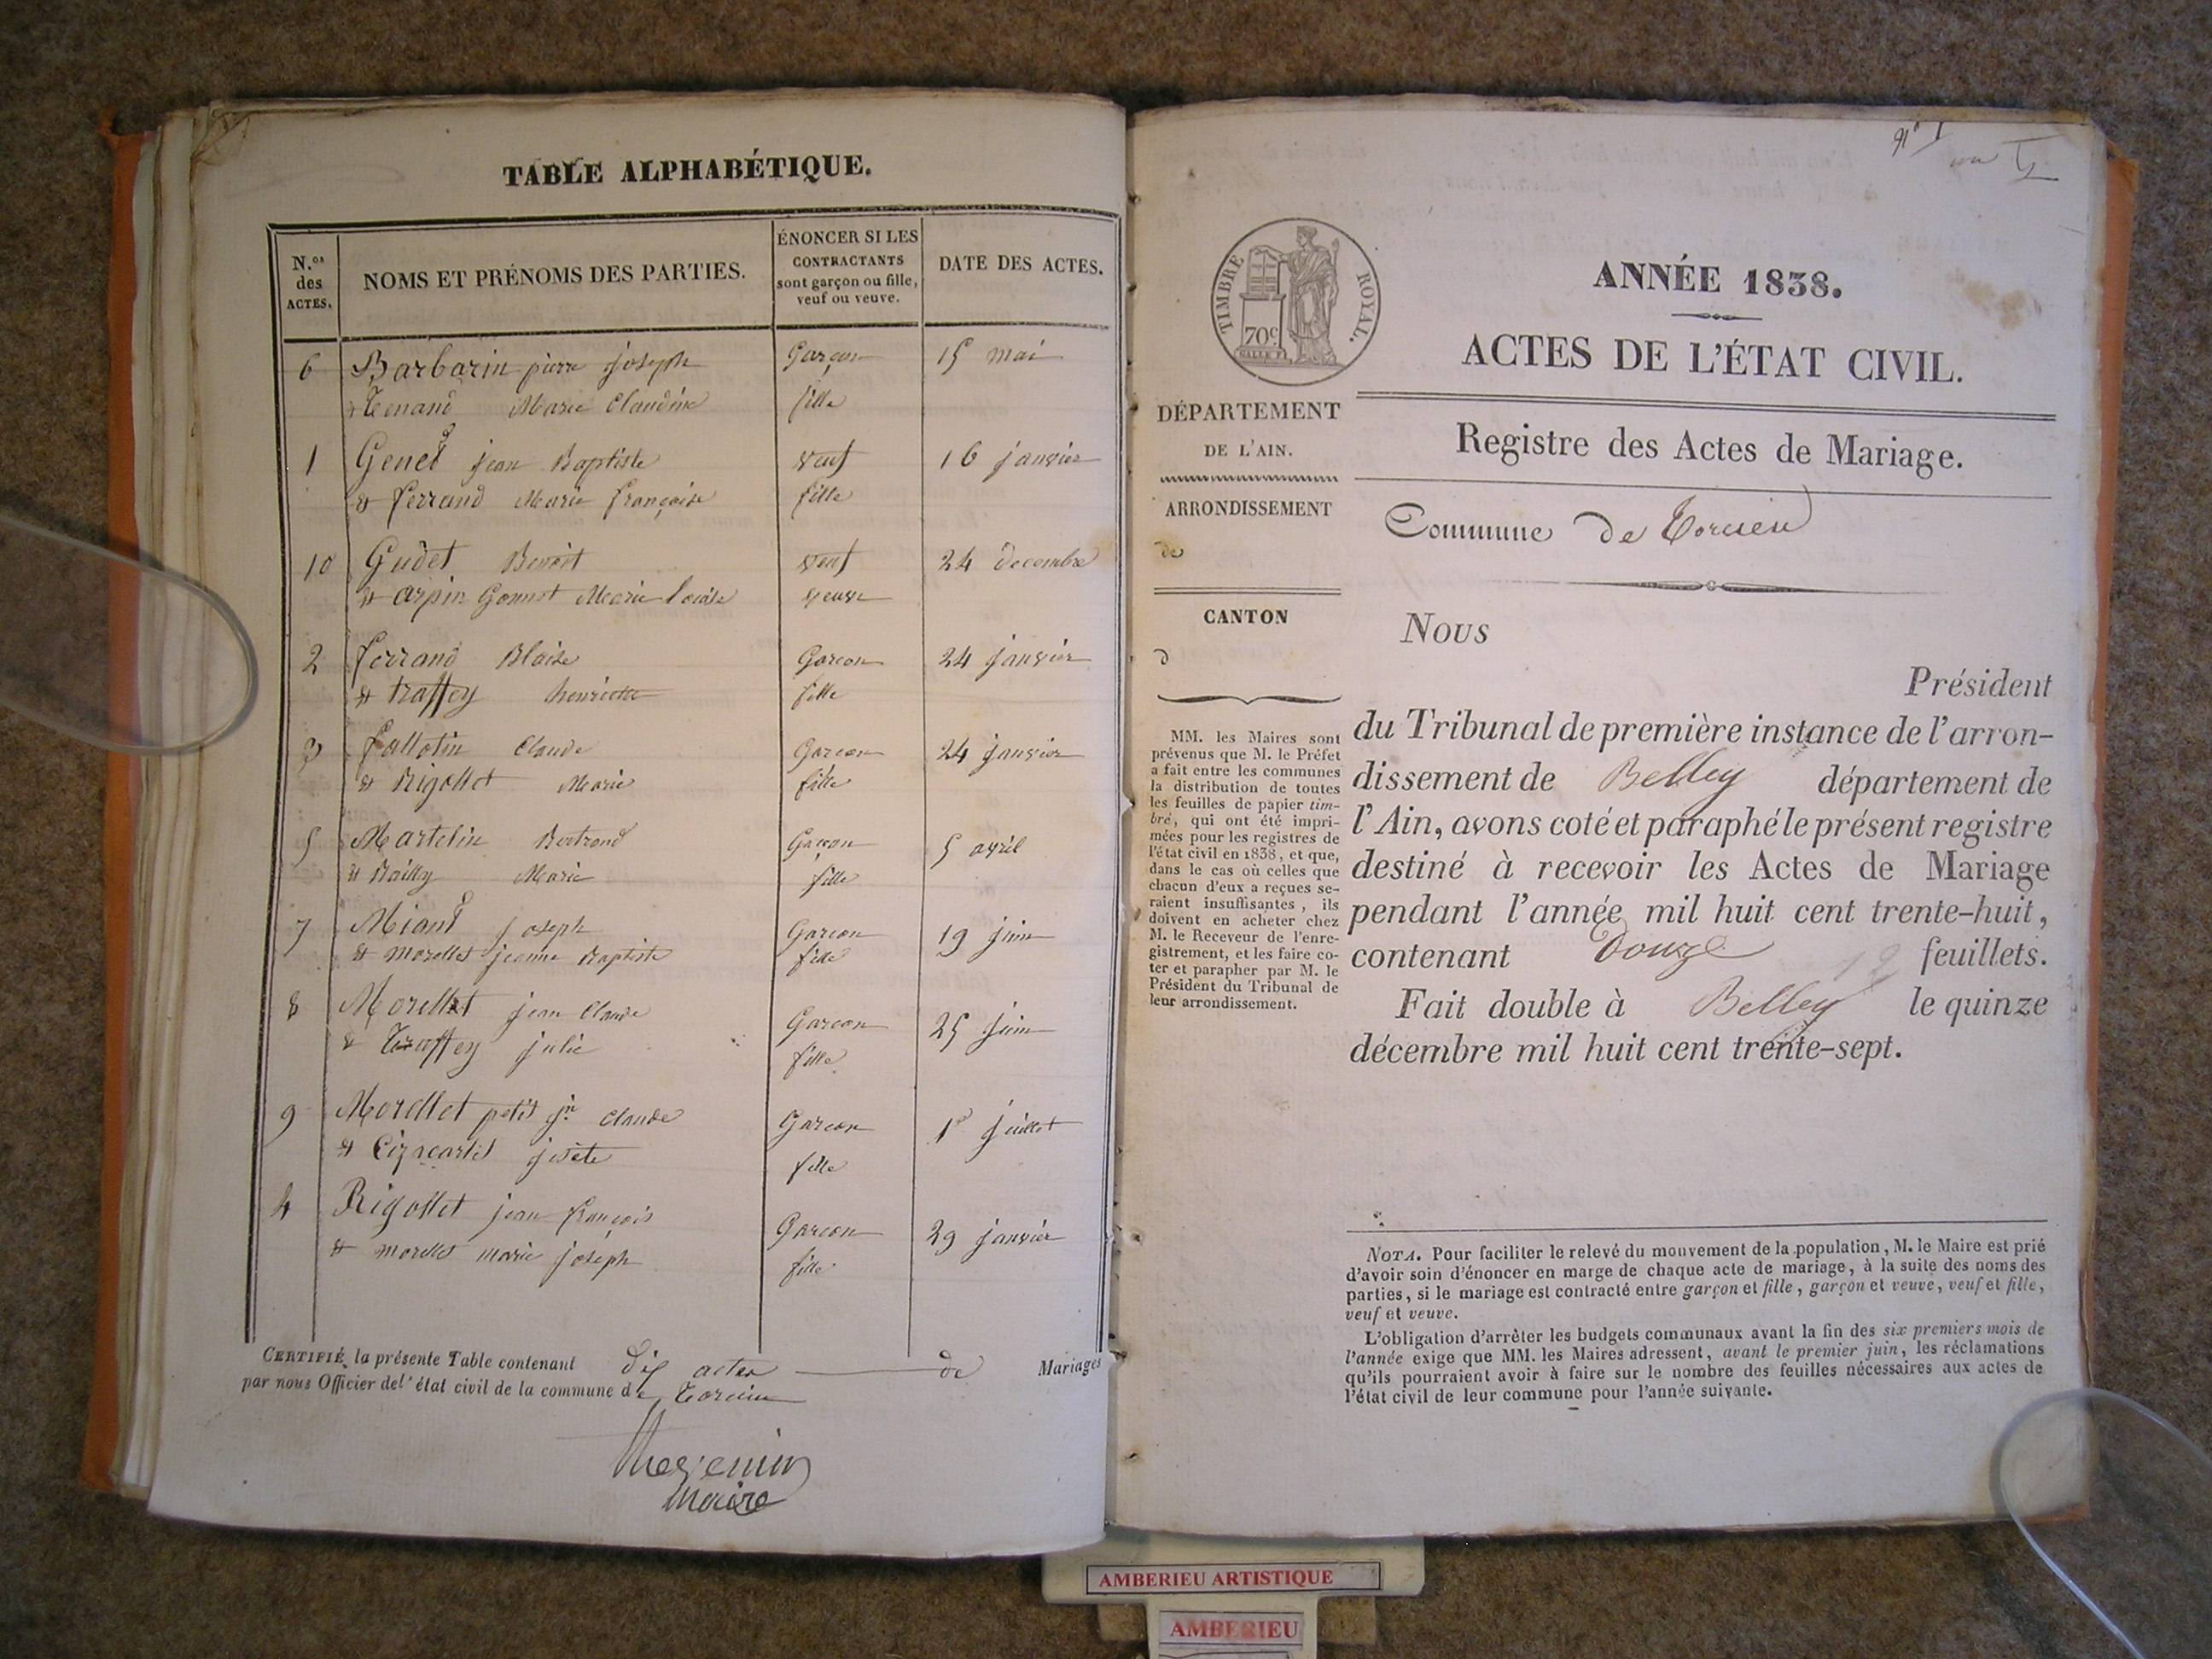 TABLE ALPHABÉTIQUE.
N.os des ACTES.
NOMS ET PRÉNOMS DES PARTIES.
ÉNONCER SI LES CONTRACTANTS sont garçon ou fille, veuf ou veuve.
DATE DES ACTES.
6 Barbarin pierre joseph Garçon 15 mai
& Tenand Marie Claudine fille
1 Genet jean Baptiste veuf 16 janvier
& ferrand Marie françoise fille
10 Gudet Benoit veuf 24 decembre
& arpin Gonnet Marie louise veuve
2 ferrand Blaise Garcon 24 janvier
& traffey henriette fille
3 fallotin Claude Garcon 24 janvier
& Rigollet Marie fille
5 Martelin Bertrand Garcon 5 avril
& Railly Marie fille
7 Miand joseph Garcon 19 juin
& morellet jeanne Baptiste fille
8 Morellet jean Claude Garcon 25 juin
& Traffey julie fille
9 Morellet petit jn Claude Garcon 1er juillet
& josete fille
4 Rigollet jean françois Garcon 29 janvier
& morellet marie joseph fille
CERTIFIÉ, la présente Table contenant dix actes de Mariages
par nous Officier de l'état civil de la commune de Torcieu
Maire
No 1
un
TIMBRE ROYAL.
70c
ANNÉE 1838.
ACTES DE L'ÉTAT CIVIL.
Registre des Actes de Mariage.
Commune de Torcieu
DÉPARTEMENT
DE L'AIN.
ARRONDISSEMENT
de
CANTON
d
MM. les Maires sont
prévenus que M. le Préfet
a fait entre les communes
la distribution de toutes
les feuilles de papier tim-
bré, qui ont été impri-
mées pour les registres de
l'état civil en 1838, et que,
dans le cas où celles que
chacun d'eux a reçues se-
raient insuffisantes, ils
doivent en acheter chez
M. le Receveur de l'enre-
gistrement, et les faire co-
ter et parapher par M. le
Président du Tribunal de
leur arrondissement.
Nous
Président
du Tribunal de première instance de l'arron-
dissement de Belley département de
l'Ain, avons coté et paraphé le présent registre
destiné à recevoir les Actes de Mariage
pendant l'année mil huit cent trente-huit,
contenant Douze 12 feuillets.
Fait double à Belley le quinze
décembre mil huit cent trente-sept.
NOTA. Pour faciliter le relevé du mouvement de la population, M. le Maire est prié
d'avoir soin d'énoncer en marge de chaque acte de mariage, à la suite des noms des
parties, si le mariage est contracté entre garçon et fille, garçon et veuve, veuf et fille,
veuf et veuve.
L'obligation d'arrêter les budgets communaux avant la fin des six premiers mois de
l'année exige que MM. les Maires adressent, avant le premier juin, les réclamations
qu'ils pourraient avoir à faire sur le nombre des feuilles nécessaires aux actes de
l'état civil de leur commune pour l'année suivante.
AMBERIEU ARTISTIQUE
AMBERIEU